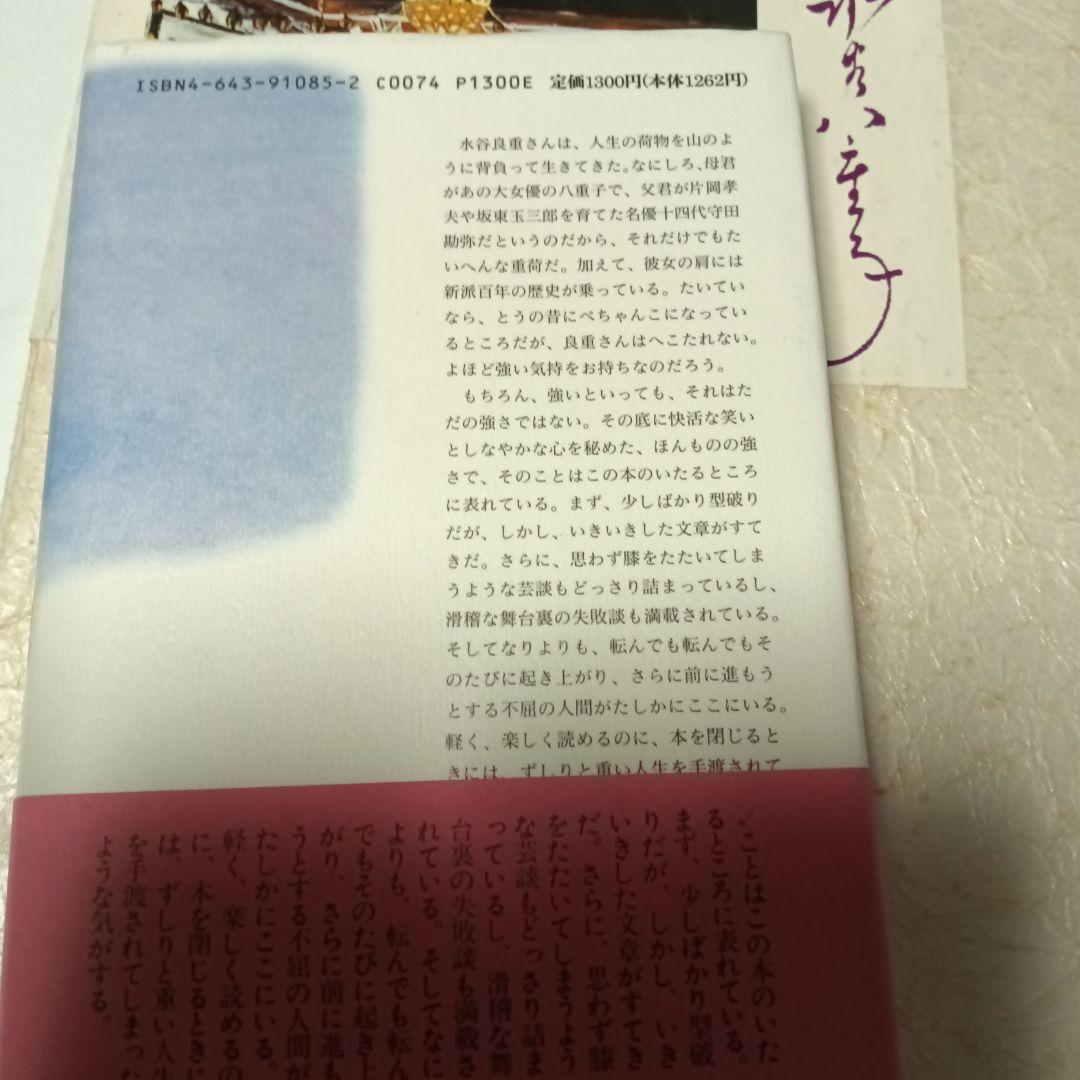 ISBN4-643-91085-2 C0074 P1300E 定価1300円(本体1262円)
水谷良重さんは、人生の荷物を山のよ
うに背負って生きてきた。なにしろ、母君
があの大女優の八重子で、父君が片岡孝
夫や坂東玉三郎を育てた名優十四代守田
勘弥だというのだから、それだけでもた
いへんな重荷だ。加えて、彼女の肩には
新派百年の歴史が乗っている。たいてい
なら、とうの昔にぺちゃんこになってい
るところだが、良重さんはへこたれない。
よほど強い気持をお持ちなのだろう。
もちろん、強いといっても、それはた
だの強さではない。その底に快活な笑い
としなやかな心を秘めた、ほんものの強
さで、そのことはこの本のいたるところ
に表れている。まず、少しばかり型破り
だが、しかし、いきいきした文章がすて
きだ。さらに、思わず膝をたたいてしま
うような芸談もどっさり詰まっているし、
滑稽な舞台裏の失敗談も満載されている。
そしてなりよりも、転んでも転んでもそ
のたびに起き上がり、さらに前に進もう
とする不屈の人間がたしかにここにいる。
軽く、楽しく読めるのに、本を閉じると
きには、ずしりと重い人生を手渡されて
ことはこの本のいた
るところに表れている。
まず、少しばかり型破
りだが、しかし、いき
いきした文章がすてき
だ。さらに、思わず膝
をたたいてしまうよう
な芸談もどっさり詰ま
っているし、滑稽な舞
台裏の失敗談も満載さ
れている。そしてなに
よりも、転んでも転ん
でもそのたびに起き上
がり、さらに前に進も
うとする不屈の人間が
たしかにここにいる。
軽く、楽しく読めるの
に、本を閉じるときに
は、ずしりと重い人生
を手渡されてしまった
ような気がする。
八重子